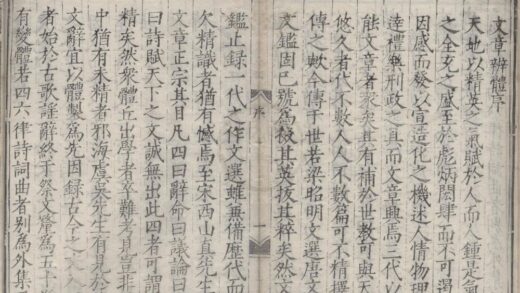 文章辨體序
天地以精英之氣賦於人而人鍾是氣
之全充之盛至於彪炳閎肆而不可遏
因感而發以宣造化之機述人情物理
達禮樂刑政之具而文章興焉三代以
能文章者衆矣其有補於世教可與天
悠久者代不數人人不數篇可不精擇
傳之歟今傳于世若梁昭明文選唐文
文鑑固已號為掇其英拔其粹矣然文
序 一
鑑止録一代之作文選雖兼備歷代而
欠精識者猶有憾焉至宋西山真先生
文章正宗其目凡四曰辭命曰議論曰
曰詩賦天下之文誠無出此四者可謂
精矣然衆體互出學者卒難考見豈非
中猶有未精者邪海虞吳先生有見於
文辭宜以體製為先因録古今之文入
者始於古歌謠辭終于祭文釐為五十
有變體若四六律詩詞曲者別為外集